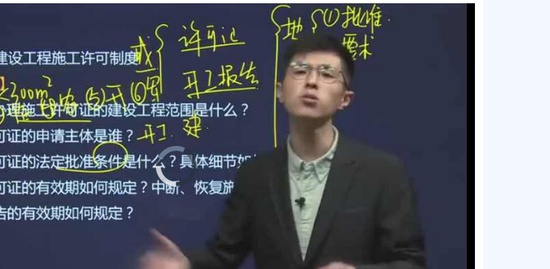 建设工程施工许可制度
或
许可证
开工报告
地
①批准
≤300m²
⑤开
⑥
理施工许可证的建设工程范围是什么？
可证的申请主体是谁？
开工
建
可证的法定批准条件是什么？具体细节如
可证的有效期如何规定？中断、恢复施
告的有效期如何规定？